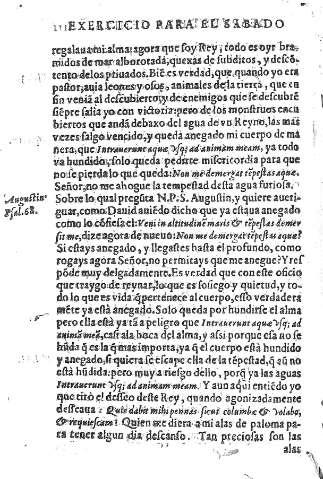 EXERCICIO PARA EL SABADO
regalaua mi alma; agora que soy Rey, todo es oyr bra-
midos de mar alborotada, quexas de subditos, y descõ-
tento de los priuados. Biẽ es verdad, que, quando yo era
pastor, auia leones y osos, animales de la tierra, que en
fin veniã al descubierto, y de enemigos que se descubrẽ
siẽpre salia yo con victoria: pero de los monstruos encu
biertos que andã debaxo del agua de vn Reyno, las mas
vezes salgo vencido, y queda anegado mi cuerpo de ma
nera, que Intrauerunt aquæ vsq; ad animam meam, ya todo
va hundido, y solo queda pedirte misericordia para que
no se pierda lo que queda: Non me demergat tẽpestas aquæ.
Señor, no me ahogue la tempestad desta agua furiosa.
Augustin⁹
Psal. 68.
Sobre lo qual pregũta N. P. S. Augustin, y quiere aueri-
guar, como Dauid auiẽdo dicho que ya estaua anegado
como lo cõfiessa el: Veni in altitudinẽ maris & tẽpestas demer
sit me, dize agora de nueuo: Non me demergat tẽpestas aquæ?
Si estays anegado, y llegastes hasta el profundo, como
rogays agora Señor, no permitays que me anegue? Y res
põde muy delgadamente. Es verdad que con este oficio
que traygo de reynar, lo que es sosiego y quietud, y to-
do lo que es vida q̃ pertenece al cuerpo, esso verdadera
mẽte ya està anegado. Solo queda por hundirse el alma
pero ella està ya tã a peligro que Intrauerunt aquæ vsq; ad
animã meã, casi a la boca del alma, y assi porque esa no se
hũda q̃ es la q̃ mas importa, ya q̃ el cuerpo està hundido
y anegado, si quiera se escape ella de la tẽpestad, q̃ aũ no
està hũdida: pero muy a riesgo dello, porq̃ ya las aguas
Intrauerunt vsq; ad animam meam. Y aun aqui entiẽdo yo
que tirò el desseo deste Rey, quando agonizadamente
desseaua: Quis dabit mihi pennas sicut columbæ & volabo,
& requiescam? Quien me diera a mi alas de paloma pa-
ra tener algun dia descanso. Tan preciosas son las
alas